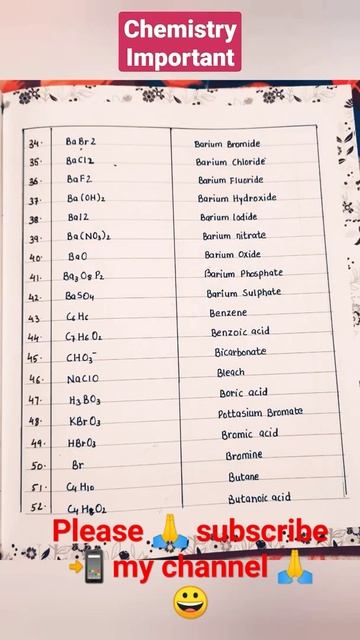 Chemistry
Important
34. BaBr2 Barium Bromide
35. BaCl2 Barium Chloride
36. BaF2 Barium Fluoride
37. Ba(OH)2 Barium Hydroxide
38. BaI2 Barium Iodide
39. Ba(NO3)2 Barium nitrate
40. BaO Barium Oxide
41. Ba3O8P2 Barium Phosphate
42. BaSO4 Barium Sulphate
43. C6H6 Benzene
44. C7H6O2 Benzoic acid
45. CHO3⁻ Bicarbonate
46. NaClO Bleach
47. H3BO3 Boric acid
48. KBrO3 Pottasium Bromate
49. HBrO3 Bromic acid
50. Br Bromine
51. C4H10 Butane
52. C4H8O2 Butanoic acid
Please 🙏 subscribe
📲 my channel 🙏
😀